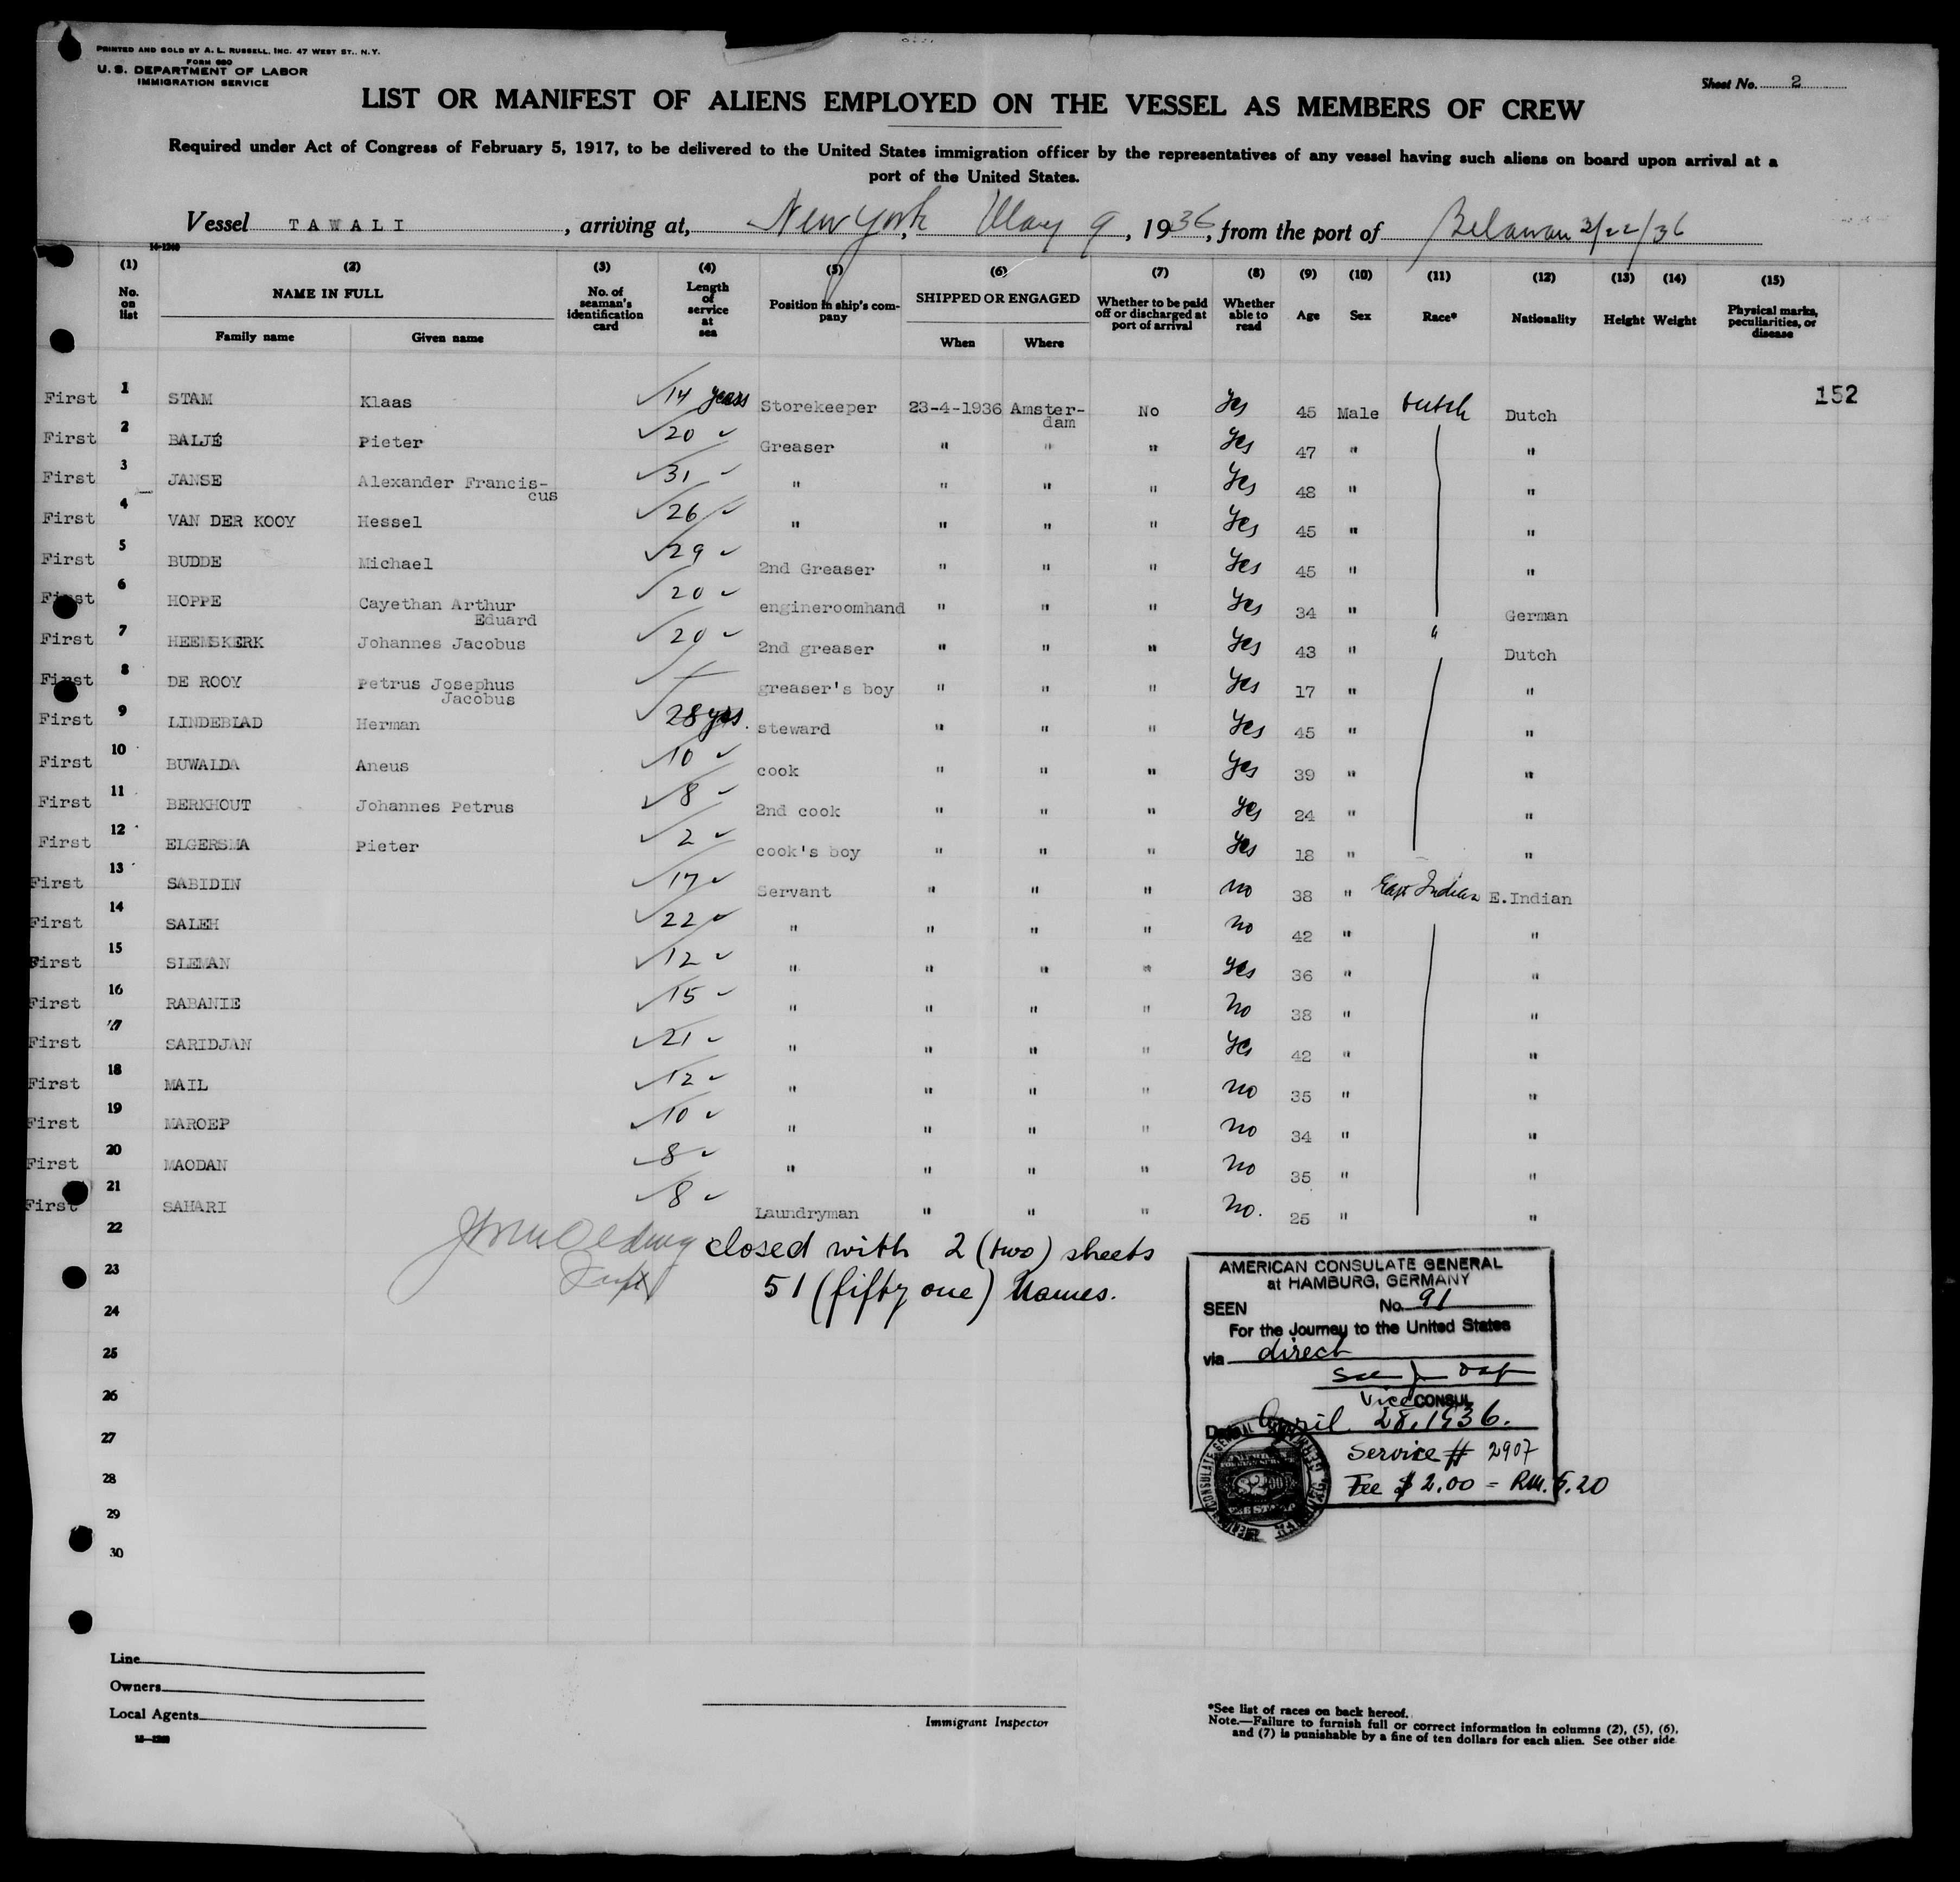 PRINTED AND SOLD BY A. L. RUSSELL, INC. 47 WEST ST., N. Y.
FORM 680
U. S. DEPARTMENT OF LABOR
IMMIGRATION SERVICE
Sheet No. 2
LIST OR MANIFEST OF ALIENS EMPLOYED ON THE VESSEL AS MEMBERS OF CREW
Required under Act of Congress of February 5, 1917, to be delivered to the United States immigration officer by the representatives of any vessel having such aliens on board upon arrival at a
port of the United States.
Vessel TAWALI, arriving at, New York, May 9, 1936, from the port of Belawan 3/22/36
(1) (2) (3) (4) (5) (6) (7) (8) (9) (10) (11) (12) (13) (14) (15)
No. on list
NAME IN FULL
Family name Given name
No. of seaman's identification card
Length of service at sea
Position in ship's company
SHIPPED OR ENGAGED
When Where
Whether to be paid off or discharged at port of arrival
Whether able to read
Age Sex Race* Nationality Height Weight
Physical marks, peculiarities, or disease
152
First 1 STAM Klaas 14 years Storekeeper 23-4-1936 Amsterdam No Yes 45 Male Dutch Dutch
First 2 BALJÉ Pieter 20 Greaser " " " Yes 47 " "
First 3 JANSE Alexander Franciscus 31 " " " " Yes 48 " "
First 4 VAN DER KOOY Hessel 26 " " " " Yes 45 " "
First 5 BUDDE Michael 29 2nd Greaser " " " Yes 45 " "
First 6 HOPPE Cayethan Arthur Eduard 20 engineroomhand " " " Yes 34 " German
First 7 HEEMSKERK Johannes Jacobus 20 2nd greaser " " " Yes 43 " " Dutch
First 8 DE ROOY Petrus Josephus Jacobus greaser's boy " " " Yes 17 " "
First 9 LINDEBLAD Herman 28 yrs. steward " " " Yes 45 " "
First 10 BUWALDA Aneus 10 cook " " " Yes 39 " "
First 11 BERKHOUT Johannes Petrus 8 2nd cook " " " Yes 24 " "
First 12 ELGERSMA Pieter 2 cook's boy " " " Yes 18 " "
First 13 SABIDIN 17 Servant " " " no 38 " East Indian E.Indian
First 14 SALEH 22 " " " " no 42 " "
First 15 SLEMAN 12 " " " " Yes 36 " "
First 16 RABANIE 15 " " " " No 38 " "
First 17 SARIDJAN 21 " " " " Yes 42 " "
First 18 MAIL 12 " " " " no 35 " "
First 19 MAROEP 10 " " " " no 34 " "
First 20 MAODAN 8 " " " " no 35 " "
First 21 SAHARI 8 Laundryman " " " No. 25 " "
22
closed with 2 (two) sheets
23
51 (fifty one) Names.
24
25
26
27
28
29
30
AMERICAN CONSULATE GENERAL
at HAMBURG, GERMANY
SEEN No. 91
For the Journey to the United States
via direct
Vice CONSUL
Date April 28, 1936.
Service # 2907
Fee $ 2.00 = RM. 5.20
Line
Owners
Local Agents
Immigrant Inspector
*See list of races on back hereof.
Note.—Failure to furnish full or correct information in columns (2), (5), (6),
and (7) is punishable by a fine of ten dollars for each alien. See other side